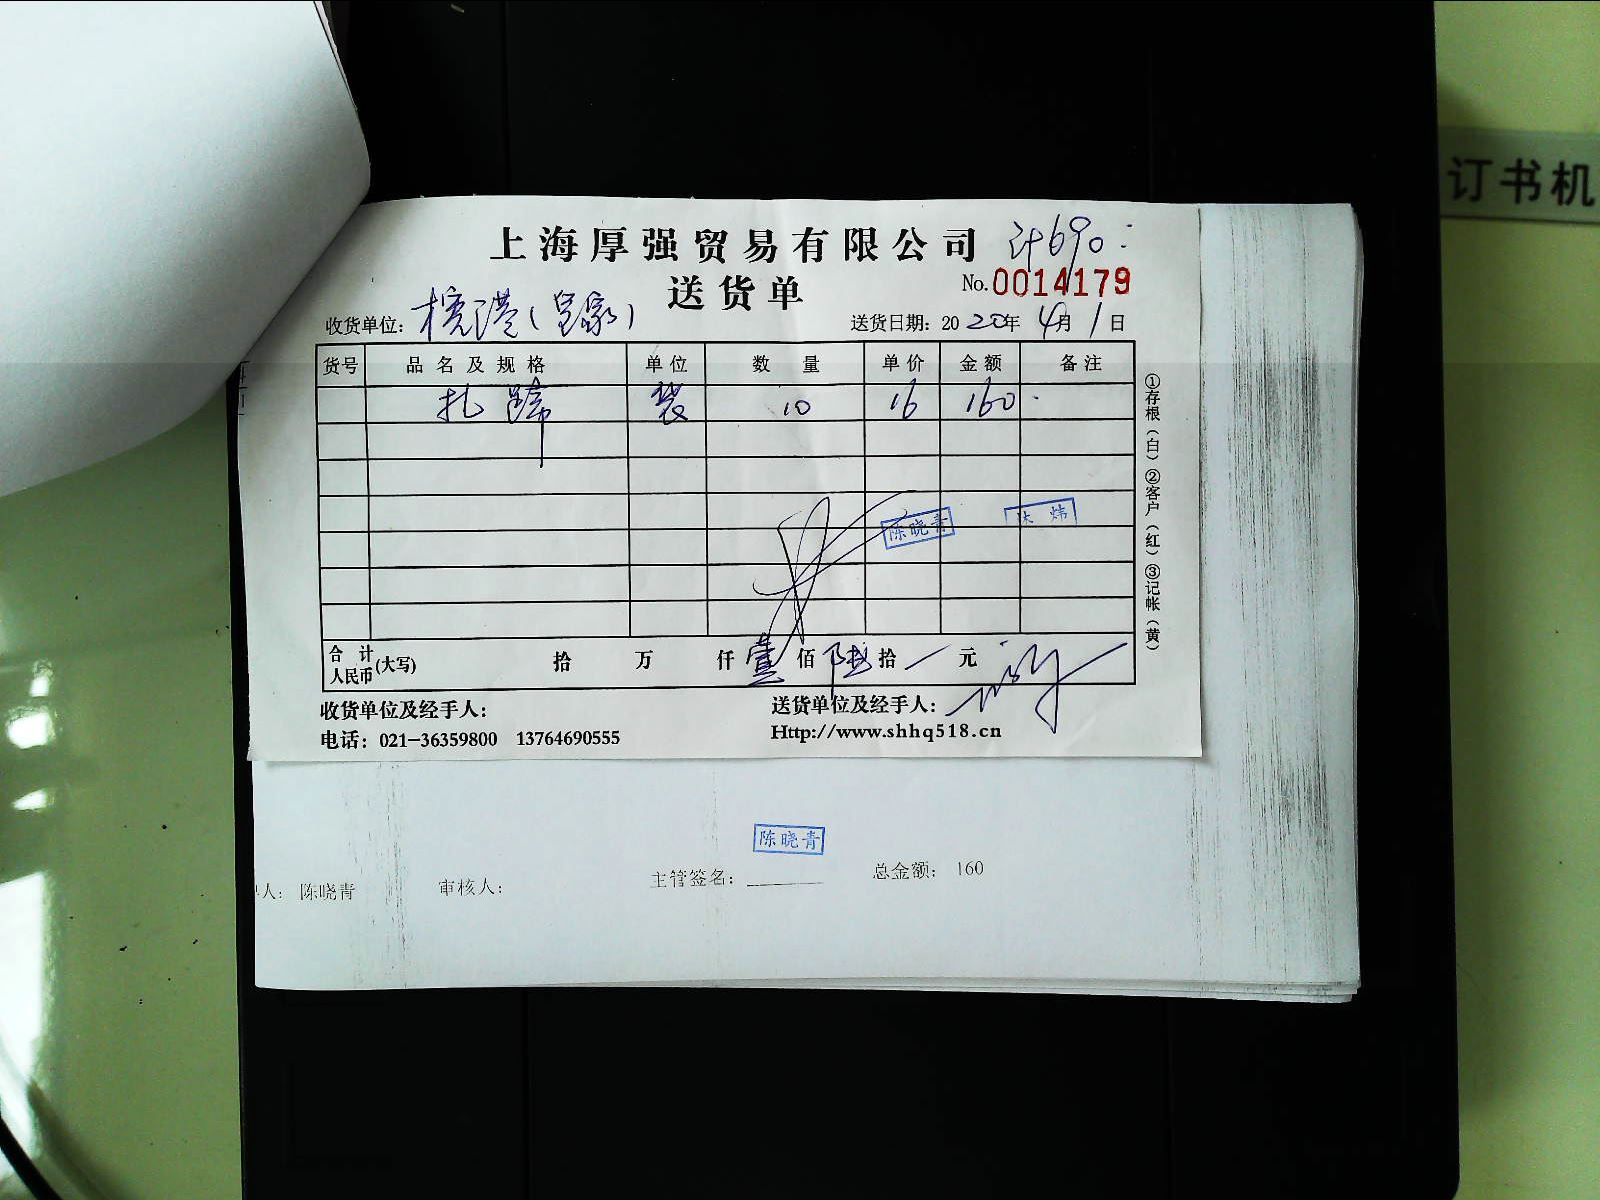 订书机
上海厚强贸易有限公司 计690:
送货单 No.0014179
收货单位: 港(皇家) 送货日期: 2020年4月1日
货号 品名及规格 单位 数量 单价 金额 备注
扎蹄 袋 10 16 160
陈晓青 炜
合计人民币(大写) 拾 万 仟 壹佰 陆拾 元
收货单位及经手人: 送货单位及经手人:
电话: 021-36359800 13764690555 Http://www.shhq518.cn
①存根(白)②客户(红)③记帐(黄)
陈晓青
人: 陈晓青 审核人: 主管签名: 总金额: 160